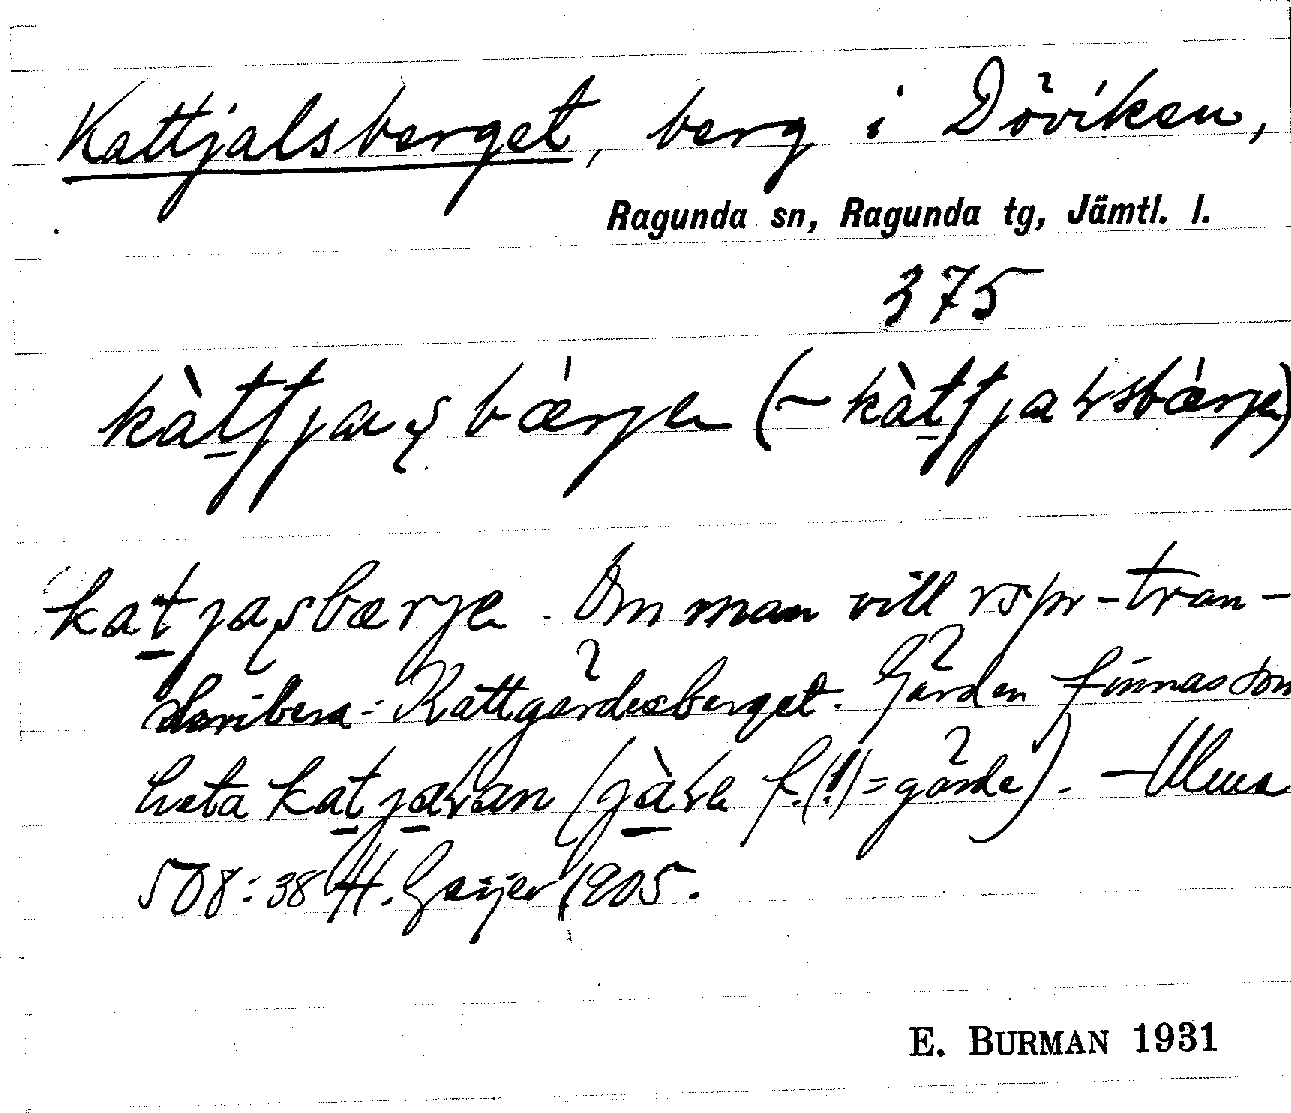 Kattjalsberget, berg i Döviken,
Ragunda sn, Ragunda tg, Jämtl. l.
375
kàttjaʂbærjen (~ kàttjaɽsbærjen)
katjaʂbærjen. Om man vill rspr-tran-
skribera: Kattgärdesberget. Gärden finnas som
heta katjaɽan (jàɽa f.(!) = gärde). – Ulma
508:38 H. Geijer 1905.
E. BURMAN 1931